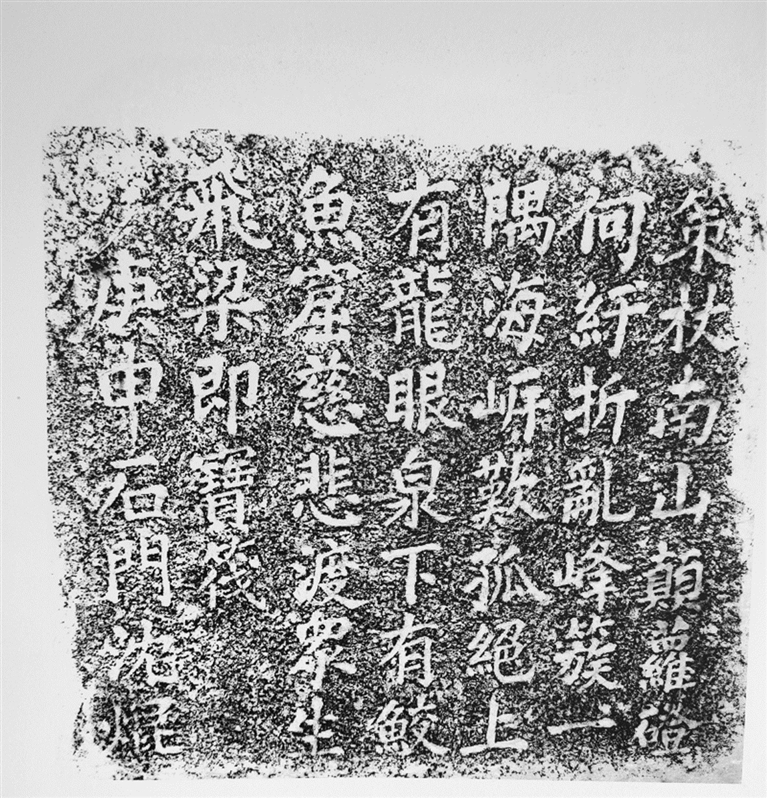 策杖南山顛蘿磴
何紆折亂峰簇一
隅海歎孤絕上
有龍眼泉下有鮫
魚窟慈悲渡眾生
飛梁即寶筏
庚申石門沈焜